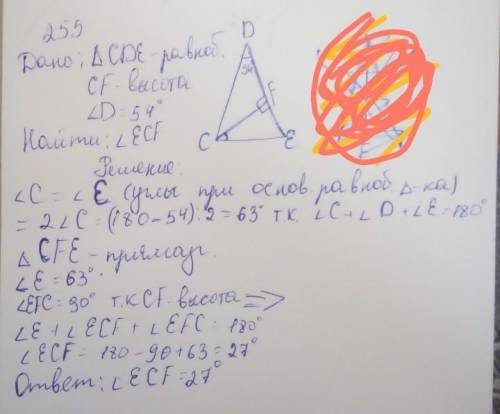 255
Дано: △CDE - равноб.
CF - высота
∠D = 54°
Найти: ∠ECF
D
54°
F
C
E
Решение.
∠C = ∠E (углы при основ. равноб. △-ка)
= 2∠C = (180 - 54) : 2 = 63° т.к. ∠C + ∠D + ∠E = 180°
△CFE - прямоуг.
∠E = 63°
∠EFC = 90° т.к CF - высота =>
∠E + ∠ECF + ∠EFC = 180°
∠ECF = 180 - 90 + 63 = 27°
Ответ: ∠ECF = 27°